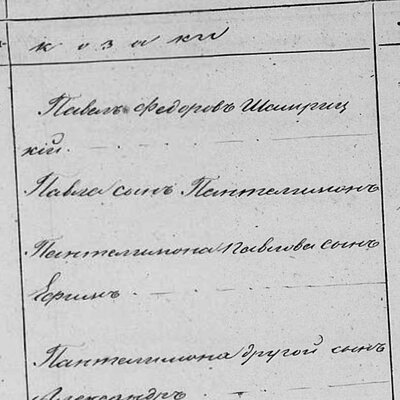 козаки
Павелъ Федоровъ Шамриц
кій.
Павла сынъ Пантелимонъ
Пантелимона Павлова сынъ
Ефимъ
Пантелимона другой сынъ
Александръ